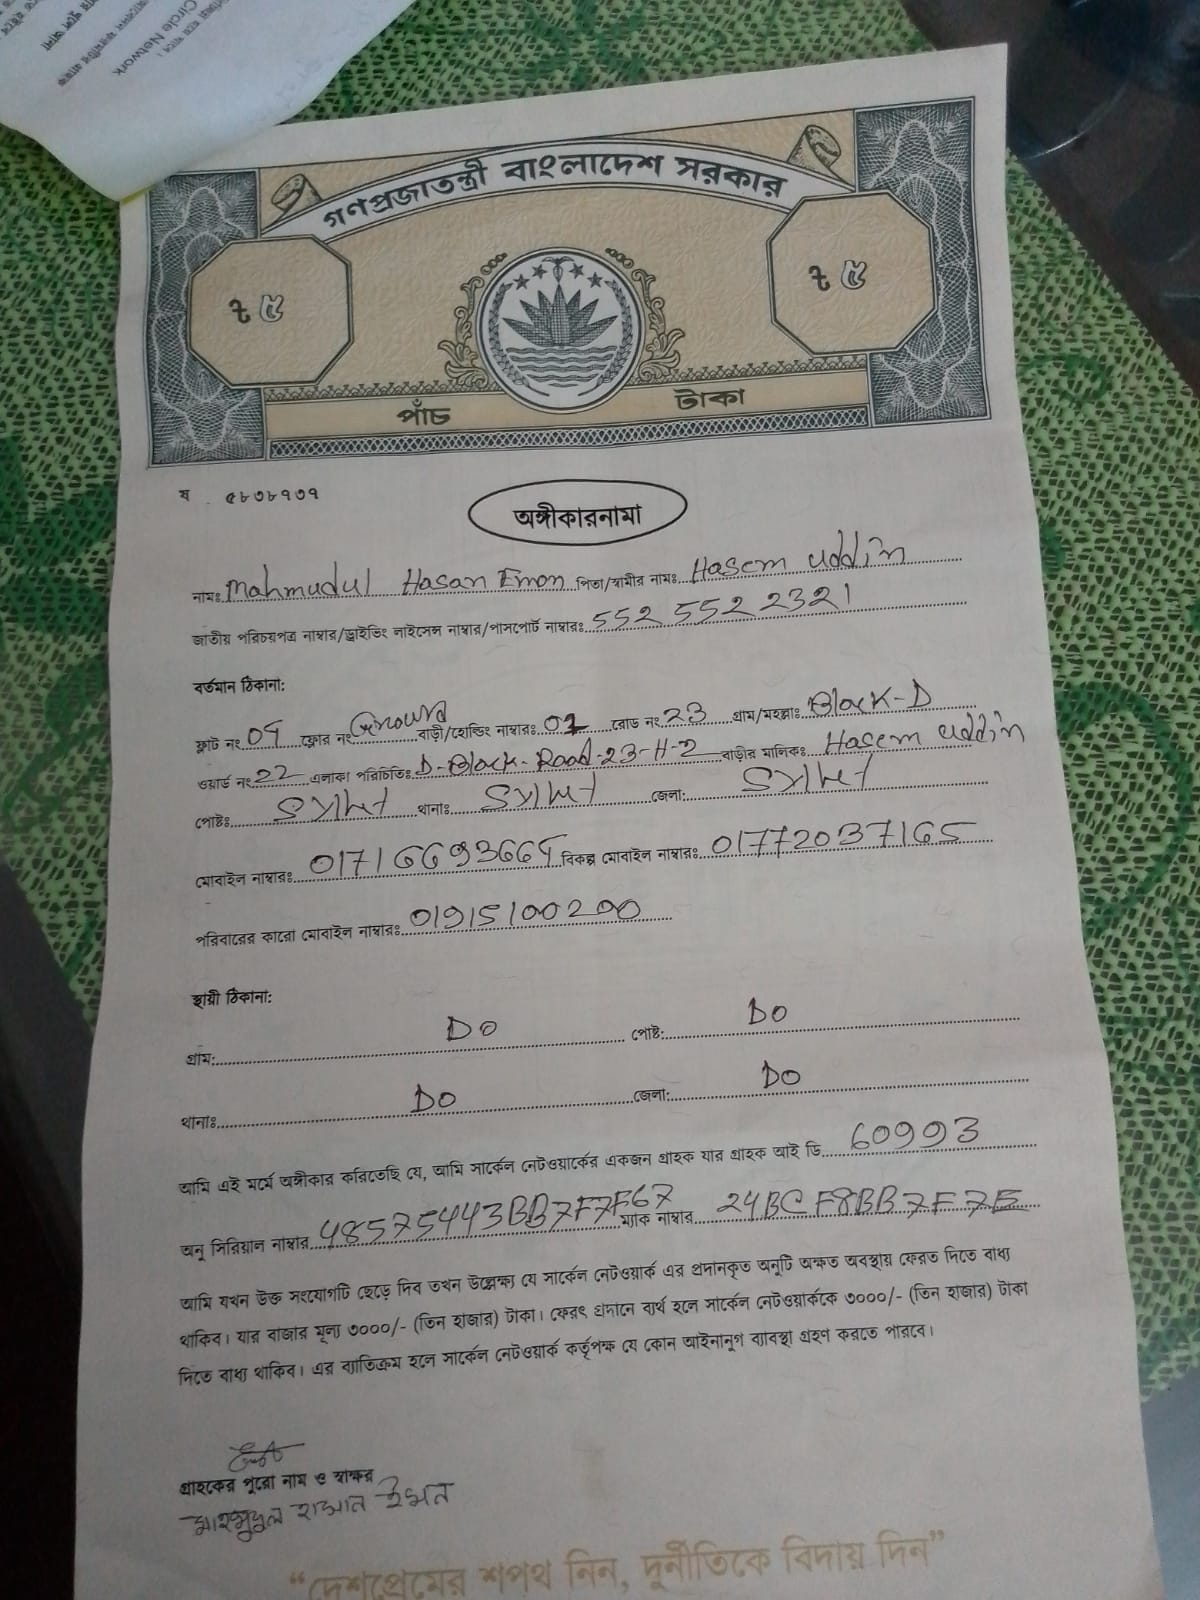 Circle Network
গণপ্রজাতন্ত্রী বাংলাদেশ সরকার
৳ ৫ ৳ ৫
পাঁচ টাকা
ষ ৫৮৩৮৭৩৭
অঙ্গীকারনামা
নামঃ Mahmudul Hasan Emon পিতা/স্বামীর নামঃ Hasem uddin
জাতীয় পরিচয়পত্র নাম্বার/ড্রাইভিং লাইসেন্স নাম্বার/পাসপোর্ট নাম্বারঃ 552 552 2321
বর্তমান ঠিকানা:
ফ্লাট নং ফ্লোর নং Ground বাড়ী/হোল্ডিং নাম্বারঃ রোড নং 23 গ্রাম/মহল্লাঃ Block-D
ওয়ার্ড নং 22 এলাকা পরিচিতিঃ D-Block-Road-23-H-2 বাড়ীর মালিকঃ Hasem uddin
পোষ্টঃ Sylhet থানাঃ Sylhet জেলা: Sylhet
মোবাইল নাম্বারঃ বিকল্প মোবাইল নাম্বারঃ 01772037165
পরিবারের কারো মোবাইল নাম্বারঃ 01915100200
স্থায়ী ঠিকানা:
গ্রাম: Do পোষ্ট: Do
থানাঃ Do জেলা: Do
আমি এই মর্মে অঙ্গীকার করিতেছি যে, আমি সার্কেল নেটওয়ার্কের একজন গ্রাহক যার গ্রাহক আই ডি 60993
অনু সিরিয়াল নাম্বার 48575443BB7F7F67 ম্যাক নাম্বার 24BCF8BB7F7E
আমি যখন উক্ত সংযোগটি ছেড়ে দিব তখন উল্লেক্ষ্য যে সার্কেল নেটওয়ার্ক এর প্রদানকৃত অনুটি অক্ষত অবস্থায় ফেরত দিতে বাধ্য
থাকিব। যার বাজার মূল্য ৩০০০/- (তিন হাজার) টাকা। ফেরৎ প্রদানে ব্যর্থ হলে সার্কেল নেটওয়ার্ককে ৩০০০/- (তিন হাজার) টাকা
দিতে বাধ্য থাকিব। এর ব্যাতিক্রম হলে সার্কেল নেটওয়ার্ক কর্তৃপক্ষ যে কোন আইনানুগ ব্যাবস্থা গ্রহণ করতে পারবে।
গ্রাহকের পুরো নাম ও স্বাক্ষর
মাহমুদুল হাসান ইমন
“দেশপ্রেমের শপথ নিন, দুর্নীতিকে বিদায় দিন”